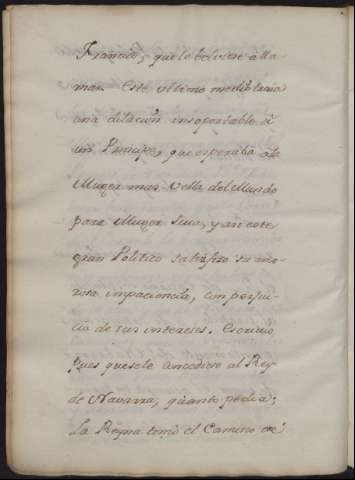 Francia, que lo bolviese à lla-
mar. Este ultimo medio tenia
una dilacion insoportable à
un Principe, que esperaba à la
Muger mas vella del Mundo
para Muger Suia, y asi este
gran Politico satisfizo su amo-
rosa impaciencia, con perjui-
cio de sus intereses. Escrivio
pues que se le concediese al Rey
de Navarra, quanto pedia;
La Reyna tomò el Camino de